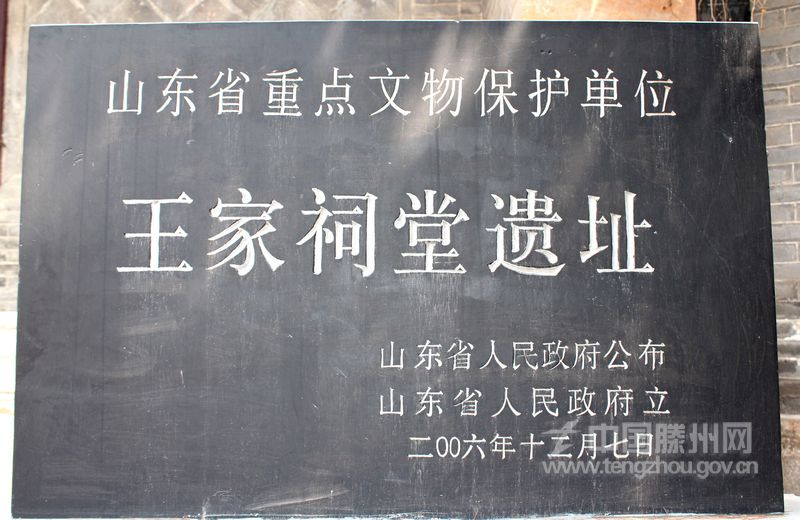 山东省重点文物保护单位
王家祠堂遗址
山东省人民政府公布
山东省人民政府立
二〇〇六年十二月七日
中国滕州网
www.tengzhou.gov.cn